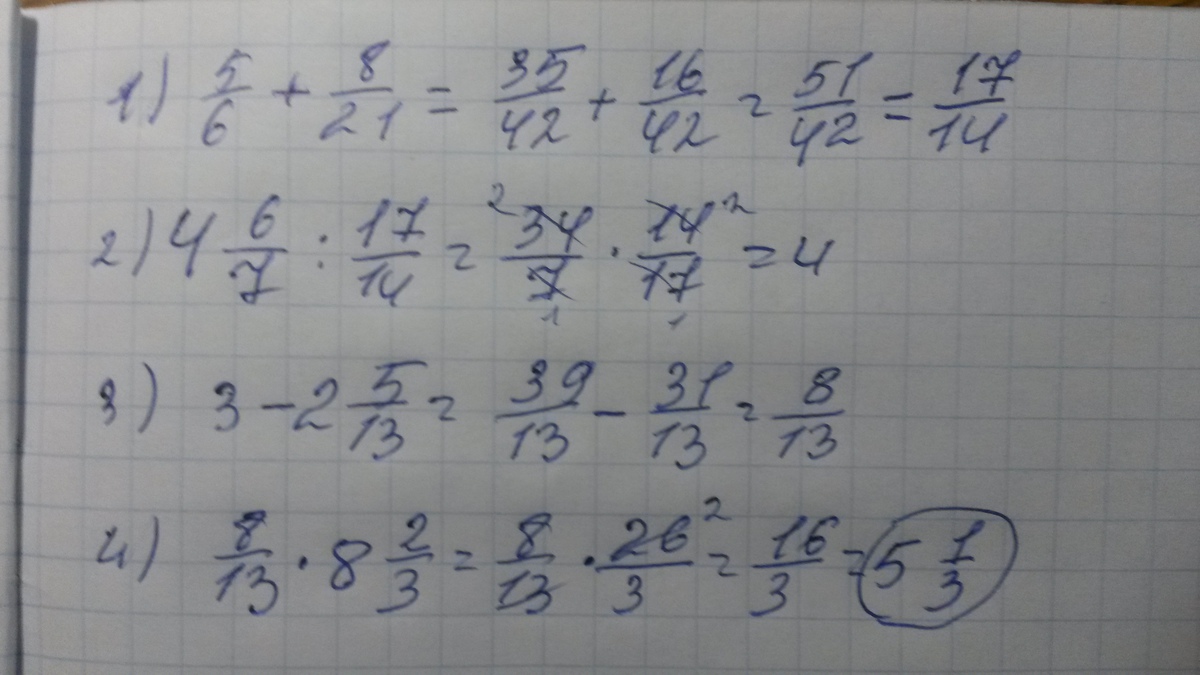 1) 5/6 + 8/21 = 35/42 + 16/42 = 51/42 = 17/14
2) 4 6/7 : 17/14 = 34/7 · 14/17 = 4
3) 3 - 2 5/13 = 39/13 - 31/13 = 8/13
4) 8/13 · 8 2/3 = 8/13 · 26/3 = 16/3 = 5 1/3